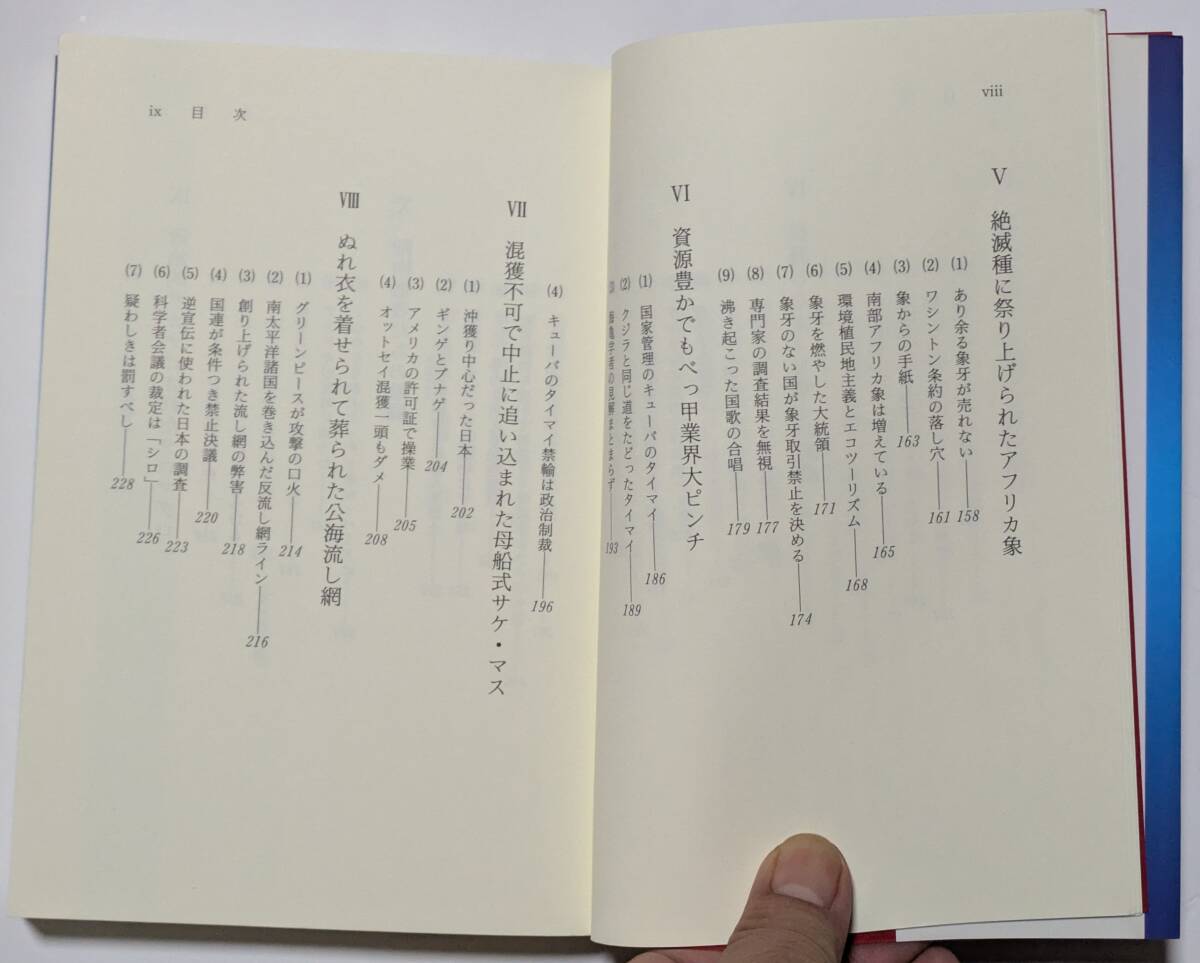 viii
V 絶滅種に祭り上げられたアフリカ象
(1) あり余る象牙が売れない――158
(2) ワシントン条約の落し穴――161
(3) 象からの手紙――163
(4) 南部アフリカ象は増えている――165
(5) 環境植民地主義とエコツーリズム――168
(6) 象牙を燃やした大統領――171
(7) 象牙のない国が象牙取引禁止を決める――174
(8) 専門家の調査結果を無視――177
(9) 沸き起こった国歌の合唱――179
VI 資源豊かでもべっ甲業界大ピンチ
(1) 国家管理のキューバのタイマイ――186
(2) クジラと同じ道をたどったタイマイ――189
海亀学者の見解まとまらず――193
ix 目次
(4) キューバのタイマイ禁輸は政治制裁――196
VII 混獲不可で中止に追い込まれた母船式サケ・マス
(1) 沖獲り中心だった日本――202
(2) ギンゲとブナゲ――204
(3) アメリカの許可証で操業――205
(4) オットセイ混獲一頭もダメ――208
VIII ぬれ衣を着せられて葬られた公海流し網
(1) グリーンピースが攻撃の口火――214
(2) 南太平洋諸国を巻き込んだ反流し網ライン――216
(3) 創り上げられた流し網の弊害――218
(4) 国連が条件つき禁止決議――220
(5) 逆宣伝に使われた日本の調査――223
(6) 科学者会議の裁定は「シロ」――226
(7) 疑わしきは罰すべし――228